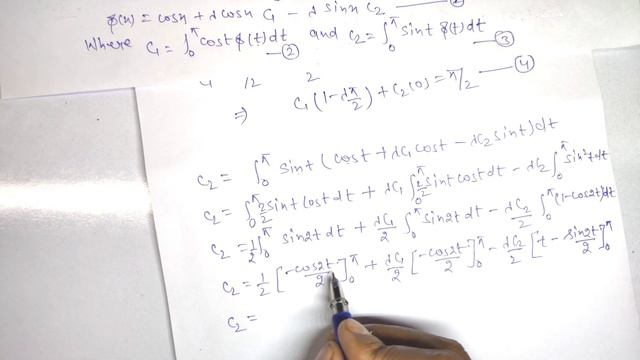 φ(x) = cosx + λ cosx C₁ − λ sinx C₂
Where C₁ = ∫₀^π cost φ(t) dt —② and C₂ = ∫₀^π sint φ(t) dt —③
4 12 2
⇒ C₁ (1 − λπ/2) + C₂(0) = π/2 —④
C₂ = ∫₀^π sint (cost + λC₁ cost − λC₂ sint) dt
C₂ = ∫₀^π 2/2 sint cost dt + λC₁ ∫₀^π 2/2 sint cost dt − λC₂ ∫₀^π sin²t dt
C₂ = 1/2 ∫₀^π sin2t dt + λC₁/2 ∫₀^π sin2t dt − λC₂/2 ∫₀^π (1−cos2t) dt
C₂ = 1/2 [−cos2t/2]₀^π + λC₁/2 [−cos2t/2]₀^π − λC₂/2 [t − sin2t/2]₀^π
C₂ =